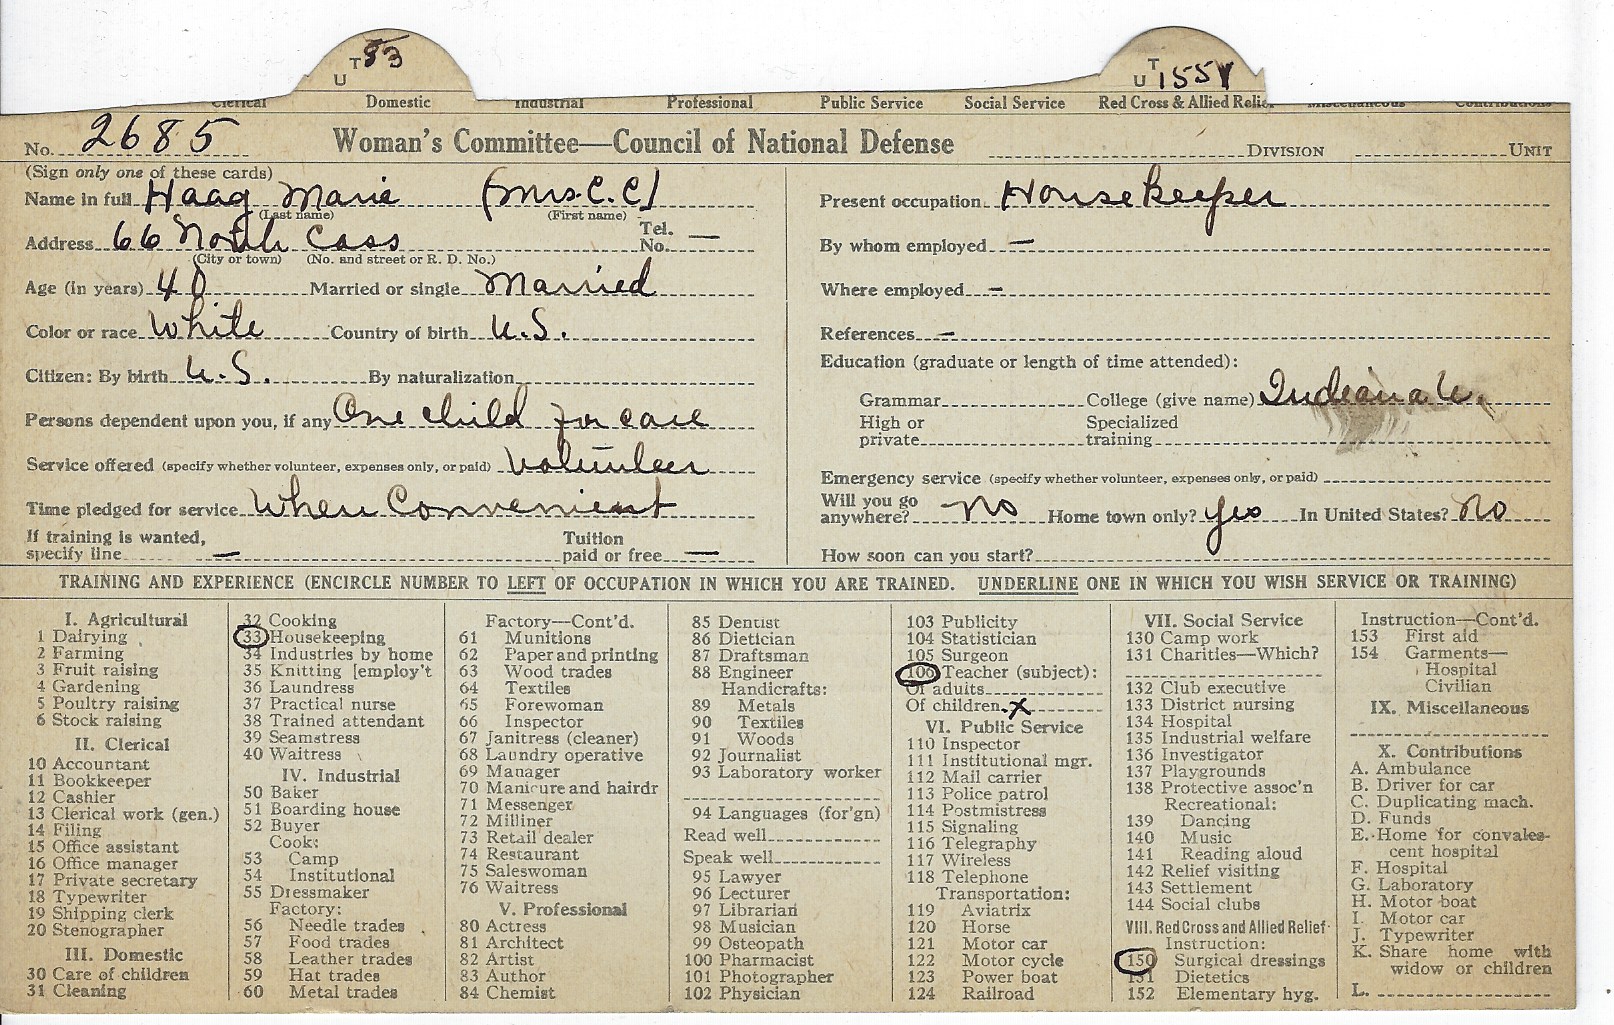 T 33
U
T 155Y
U
Clerical Domestic Industrial Professional Public Service Social Service Red Cross & Allied Relief Miscellaneous Contributions
No. 2685 Woman's Committee—Council of National Defense DIVISION UNIT
(Sign only one of these cards)
Name in full Haag Marie (Mrs. C. C)
(Last name) (First name)
Address 66 North Cass Tel. No. —
(City or town) (No. and street or R. D. No.)
Age (in years) 40 Married or single Married
Color or race White Country of birth U.S.
Citizen: By birth U.S. By naturalization
Persons dependent upon you, if any One child for care
Service offered (specify whether volunteer, expenses only, or paid) Volunteer
Time pledged for service When Convenient
If training is wanted,
specify line — Tuition
paid or free —
Present occupation Housekeeper
By whom employed —
Where employed —
References —
Education (graduate or length of time attended):
Grammar College (give name) Indiana U.
High or
private Specialized
training
Emergency service (specify whether volunteer, expenses only, or paid)
Will you go
anywhere? No Home town only? Yes In United States? No
How soon can you start?
TRAINING AND EXPERIENCE (ENCIRCLE NUMBER TO LEFT OF OCCUPATION IN WHICH YOU ARE TRAINED. UNDERLINE ONE IN WHICH YOU WISH SERVICE OR TRAINING)
I. Agricultural
1 Dairying
2 Farming
3 Fruit raising
4 Gardening
5 Poultry raising
6 Stock raising
II. Clerical
10 Accountant
11 Bookkeeper
12 Cashier
13 Clerical work (gen.)
14 Filing
15 Office assistant
16 Office manager
17 Private secretary
18 Typewriter
19 Shipping clerk
20 Stenographer
III. Domestic
30 Care of children
31 Cleaning
32 Cooking
33 Housekeeping
34 Industries by home
35 Knitting [employ't
36 Laundress
37 Practical nurse
38 Trained attendant
39 Seamstress
40 Waitress
IV. Industrial
50 Baker
51 Boarding house
52 Buyer
Cook:
53 Camp
54 Institutional
55 Dressmaker
Factory:
56 Needle trades
57 Food trades
58 Leather trades
59 Hat trades
60 Metal trades
Factory—Cont'd.
61 Munitions
62 Paper and printing
63 Wood trades
64 Textiles
65 Forewoman
66 Inspector
67 Janitress (cleaner)
68 Laundry operative
69 Manager
70 Manicure and hairdr
71 Messenger
72 Milliner
73 Retail dealer
74 Restaurant
75 Saleswoman
76 Waitress
V. Professional
80 Actress
81 Architect
82 Artist
83 Author
84 Chemist
85 Dentist
86 Dietician
87 Draftsman
88 Engineer
Handicrafts:
89 Metals
90 Textiles
91 Woods
92 Journalist
93 Laboratory worker
94 Languages (for'gn)
Read well
Speak well
95 Lawyer
96 Lecturer
97 Librarian
98 Musician
99 Osteopath
100 Pharmacist
101 Photographer
102 Physician
103 Publicity
104 Statistician
105 Surgeon
106 Teacher (subject):
Of adults
Of children x
VI. Public Service
110 Inspector
111 Institutional mgr.
112 Mail carrier
113 Police patrol
114 Postmistress
115 Signaling
116 Telegraphy
117 Wireless
118 Telephone
Transportation:
119 Aviatrix
120 Horse
121 Motor car
122 Motor cycle
123 Power boat
124 Railroad
VII. Social Service
130 Camp work
131 Charities—Which?
132 Club executive
133 District nursing
134 Hospital
135 Industrial welfare
136 Investigator
137 Playgrounds
138 Protective assoc'n
Recreational:
139 Dancing
140 Music
141 Reading aloud
142 Relief visiting
143 Settlement
144 Social clubs
VIII. Red Cross and Allied Relief
Instruction:
150 Surgical dressings
151 Dietetics
152 Elementary hyg.
Instruction—Cont'd.
153 First aid
154 Garments—
Hospital
Civilian
IX. Miscellaneous
X. Contributions
A. Ambulance
B. Driver for car
C. Duplicating mach.
D. Funds
E. Home for convales-
cent hospital
F. Hospital
G. Laboratory
H. Motor boat
I. Motor car
J. Typewriter
K. Share home with
widow or children
L.